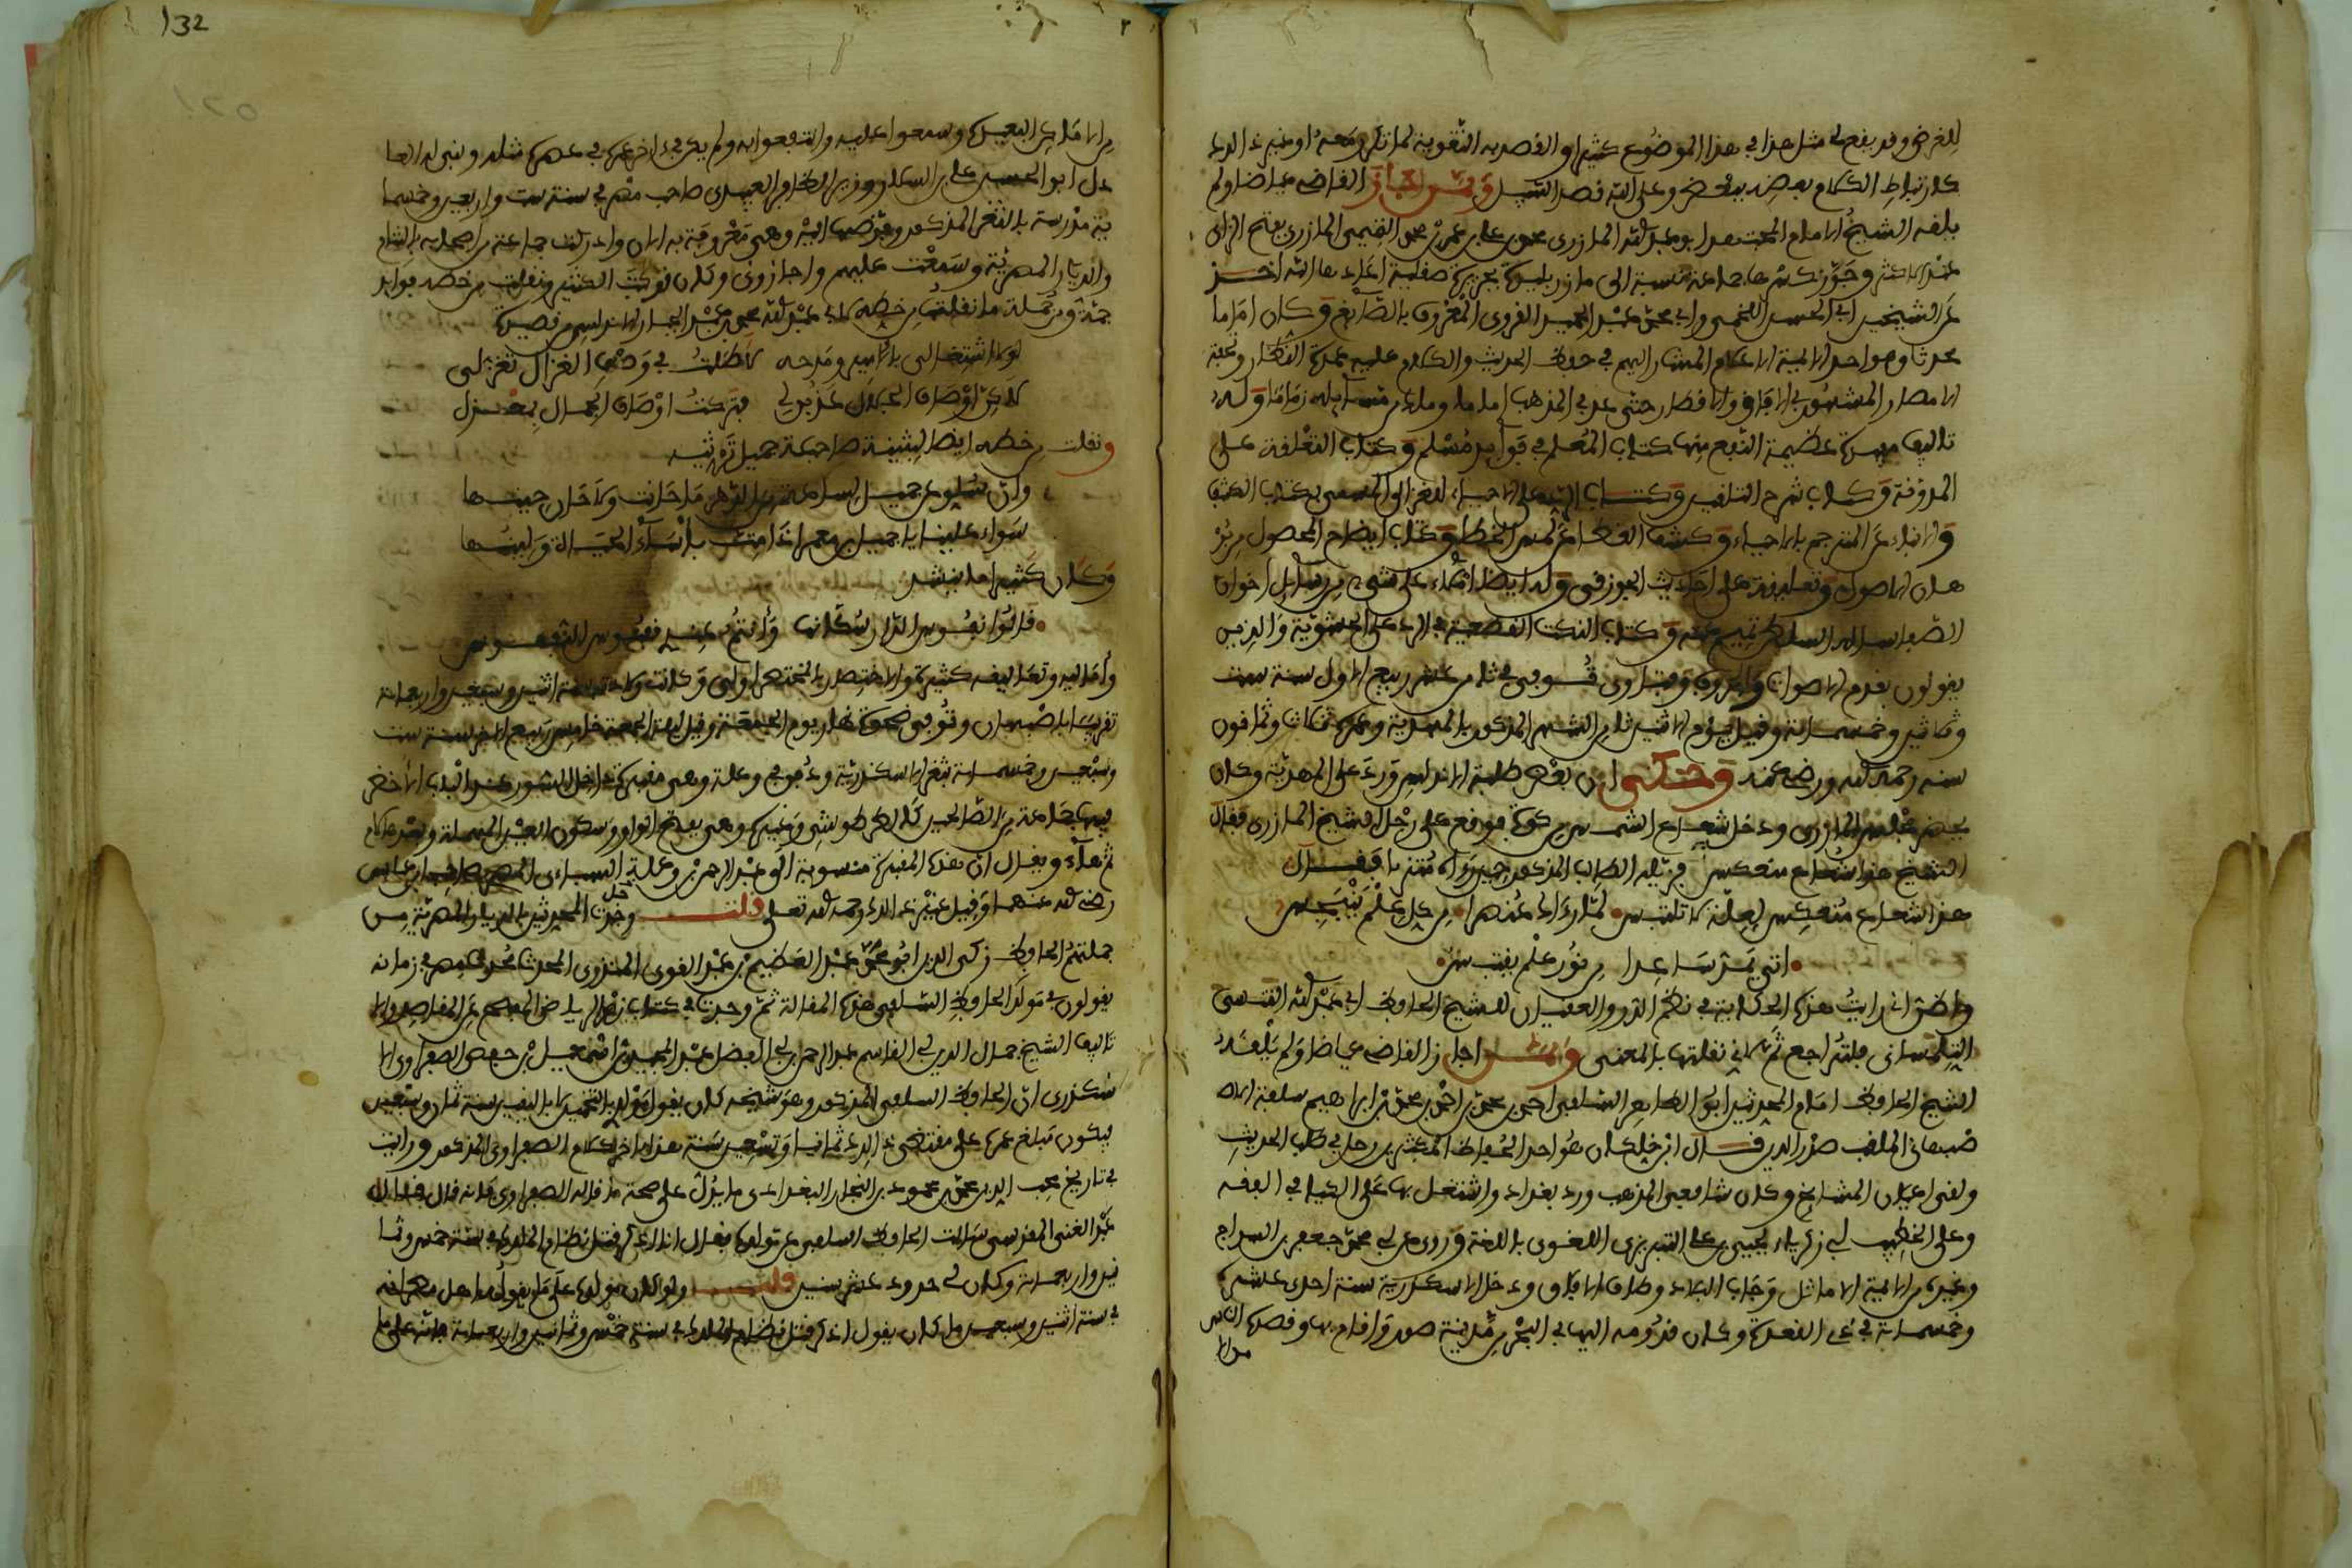 للغرض وقد يقع لي مثل هذا في هذا الموضوع كثيرا والقصد به التقوية لما نذكر معه أو غير ذلك
كارتباط الكلام بعضه ببعض وعلى الله قصد السبيل وممن أجاز القاضي عياضا ولم
يلقه الشيخ الإمام المجتهد أبو عبد الله المازري محمد بن علي بن عمر بن محمد التميمي المازري بفتح الزاي
عند الأكثر وجوز كسرها جماعة نسبة إلى مازر بليدة بجزيرة صقلية أعادها الله أخذ
عن الشيخين أبي الحسن اللخمي وأبي محمد عبد الحميد القروي المعروف بالصائغ وكان إماما
محدثا وهو أحد الأئمة الأعلام المشار إليهم في حفظ الحديث والكلام عليه عمدة النظار وتحفة
الأمصار المشهور في الآفاق والأقطار حتى عد في المذهب إماما وملك من مسائله زماما وله
تآليف مفيدة عظيمة النفع منها كتاب المعلم في فوائد مسلم وكتاب التعليقة على
المدونة وكتاب شرح التلقين وكتاب الرد على الإحياء للغزالي المسمى بكتاب الكشف
والإنباء عن المترجم بالإحياء وكشف الغطا عن لمس الخطا وكتاب إيضاح المحصول من بر
هان الأصول وتعليقة على أحاديث الجوزقي وله أيضا إملاء على شيء من رسائل إخوان
الصفا سأله السلطان تميم عنه وكتاب النكت القطعية في الرد على الحشوية والذين
يقولون بقدم الأصوات والحروف وفتاوى توفي في ثامن عشر ربيع الأول سنة ست
وثلاثين وخمسمائة وقيل يوم الاثنين ثاني الشهر المذكور بالمهدية وعمره ثلاث وثمانون
سنة رحمه الله ورضي عنه وحكى أن بعض طلبة الأندلس ورد على المهدية وكان
يحضر مجلس المازري ودخل شعاع الشمس من كوة فوقع على رجل الشيخ المازري فقال
الشيخ هذا شعاع منعكس فذيله الطالب المذكور حين رآه متزنا فقال
هذا شعاع منعكس لعلة لا تلتبس لما رآك عنصرا من كل علم ينبجس
أتى يمد ساعدا من نور علم يقتبس
وأظن أني رأيت هذه الحكاية في نظم الدر والعقيان للشيخ الحافظ أبي عبد الله التنسي
التلمساني فلتراجع ثم لأني نقلتها بالمعنى وممن أجاز القاضي عياضا ولم يلقه
الشيخ الحافظ إمام المحدثين أبو الطاهر السلفي أحمد بن محمد بن أحمد بن محمد بن إبراهيم سلفة الأ
صبهاني الملقب صدر الدين قال ابن خلكان هو أحد الحفاظ المكثرين رحل في طلب الحديث
ولقي أعيان المشايخ وكان شافعي المذهب ورد بغداد واشتغل بها على الكيا في الفقه
وعلى الخطيب أبي زكرياء يحيى بن علي التبريزي اللغوي باللغة وروى عن أبي محمد جعفر بن السراج
وغيره من الأئمة الأماثل وجاب البلاد وطاف الآفاق ودخل الإسكندرية سنة إحدى عشرة
وخمسمائة في ذي القعدة وكان قدومه إليها في البحر من مدينة صور وأقام بها وقصده الناس
من الأ
132
من الأماكن البعيدة وسمعوا عليه وانتفعوا به ولم يكن في آخر عمره في عصره مثله وبنى له العا
دل أبو الحسن علي بن السلار وزير الظافر العبيدي صاحب مصر في سنة ست وأربعين وخمسما
ئة مدرسة بالثغر المذكور وفوضها إليه وهي معروفة به الآن وأدركت جماعة من أصحابه بالشام
والديار المصرية وسمعت عليهم وأجازوني وكان قد كتب الكثير ونقلت من خطه فوائد
جمة ومن جملة ما نقلت من خطه لأبي عبد الله محمد بن عبد الجبار الأندلسي من قصيدة
لولا اشتغالي بالأمير ومدحه لأطلت في وصف الغزال تغزلي
لكن أوصاف الجلال عذبن لي فتركت أوصاف الجمال بمعزل
ونقلت من خطه أيضا لبثينة صاحبة جميل ترثيه
وإن سلوي عن جميل لساعة من الدهر ما حانت ولا حان حينها
سواء علينا يا جميل بن معمر إذا مت بأساء الحياة ولينها
وكان كثيرا ما ينشد
قالوا نفوس الدار سكانها وأنتم عندي نفوس النفوس
وأماليه وتعاليقه كثيرة والاختصار بالمختصر أولى وكانت ولادته سنة اثنين وسبعين وأربعمائة
تقريبا بأصبهان وتوفي ضحوة نهار يوم الجمعة وقيل ليلة الجمعة خامس ربيع الآخر سنة ست
وسبعين وخمسمائة بثغر الإسكندرية ودفن في وعلة وهي مقبرة داخل السور عند الباب الأخضر
فيها جماعة من الصالحين كالطرطوشي وغيره وهي بفتح الواو وسكون العين المهملة وبعدها لام
ثم هاء ويقال إن هذه المقبرة منسوبة إلى عبد الرحمن بن وعلة السبائي المصري صاحب ابن عباس
رضي الله عنهما وقيل غير ذلك رحمه الله تعالى قلت وجدت جل المحدثين بالديار المصرية من
جملتهم الحافظ زكي الدين أبو محمد عبد العظيم بن عبد القوي المنذري المحدث محدث مصر في زمانه
يقولون في مولد الحافظ السلفي هذه المقالة ثم وجدت في كتاب زهر الرياض المفصح عن المقاصد والأ
تأليف الشيخ جمال الدين أبي القاسم عبد الرحمن بن أبي الفضل عبد المجيد بن إسماعيل بن حفص الصفراوي الإ
سكندري أن الحافظ السلفي المذكور وهو شيخه كان يقول مولدي بالتخمين لا باليقين سنة ثمان وسبعين
فيكون مبلغ عمره على مقتضى ذلك ثمانيا وتسعين سنة هذا آخر كلام الصفراوي المذكور ورأيت
في تاريخ محب الدين محمد بن محمود بن النجار البغدادي ما يدل على صحة ما قاله الصفراوي فإنه قال قال
عبد الغني المقدسي سألت الحافظ السلفي عن مولده فقال أنا أذكر قتل نظام الملك في سنة خمس وثما
نين وأربعمائة وكان لي حدود عشر سنين قلت ولو كان مولده على ما يقوله أهل مصر أنه
في سنة اثنين وسبعين ما كان يقول أذكر قتل نظام الملك في سنة خمس وثمانين وأربعمائة فإنه على ما